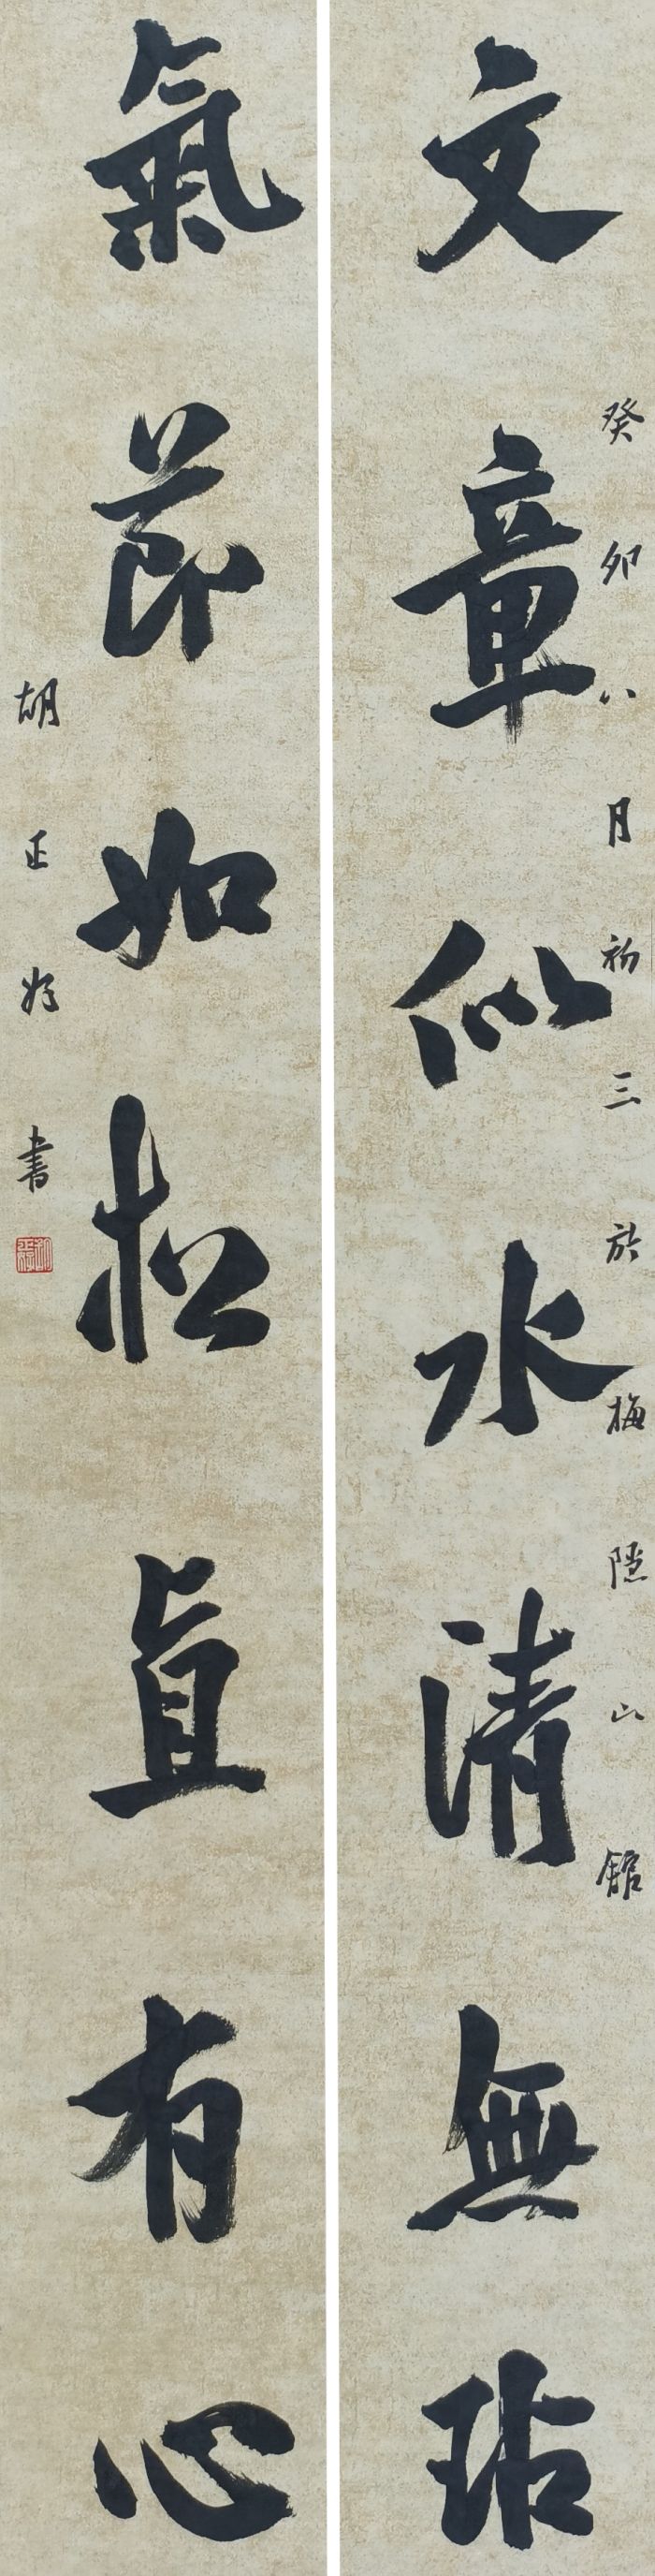 文章似水清無玷
癸卯八月初三於梅隱山館
氣節如松直有心
胡正好書